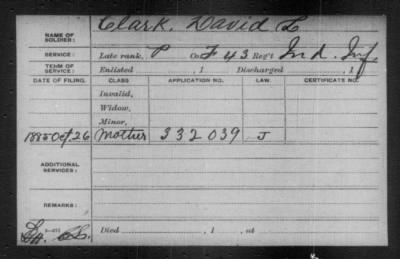 NAME OF SOLDIER: Clark, David L
SERVICE: Late rank, P Co. F 43 Reg't Ind. Inf
TERM OF SERVICE: Enlisted , 1 Discharged , 1
DATE OF FILING. CLASS. APPLICATION NO. LAW. CERTIFICATE NO.
Invalid,
Widow,
Minor,
1885 Oct 26 Mother 332 039 J
ADDITIONAL SERVICES:
REMARKS:
Died , 1 , at